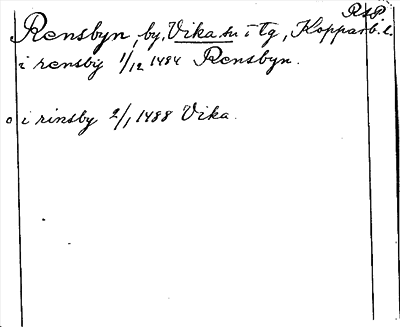 RAP
Rensbyn, by, Vika sn i Tg, Kopparb. l.
i rensbÿ 1/12 1484 Rensbyn.
o i rinsby 2/1 1488 Vika.